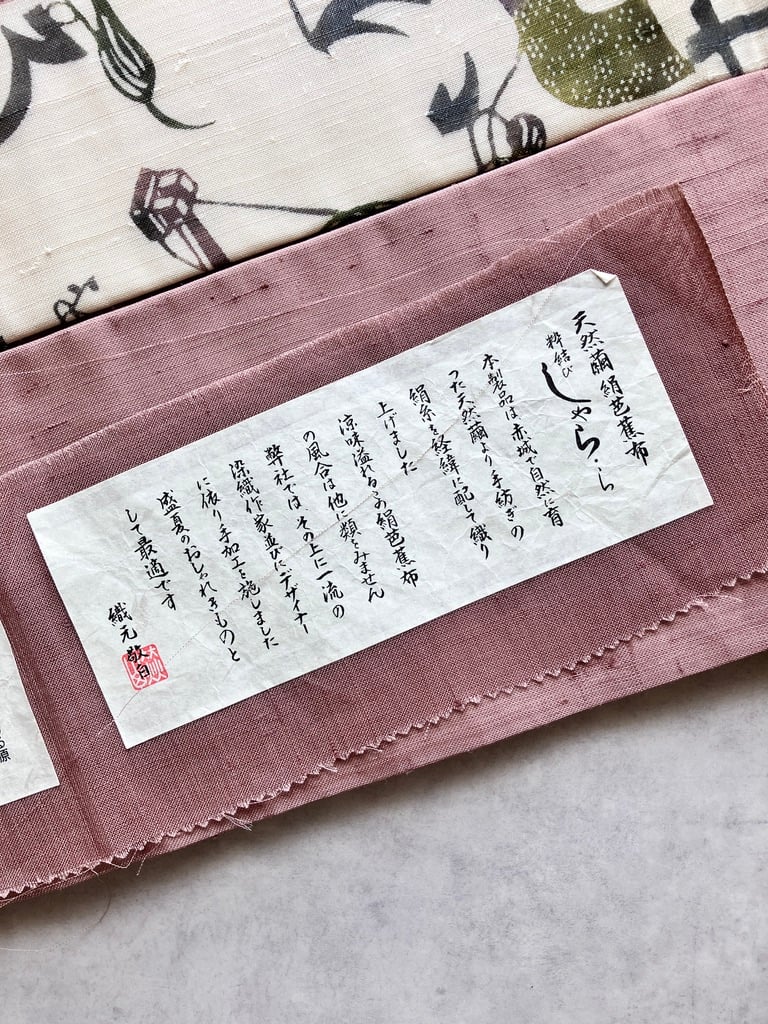 天然繭絹芭蕉布
粋結び しゃら・ら
本製品は赤城で自然に育
った天然繭より手紡ぎの
絹糸を経緯に配して織り
上げました
涼味溢れるこの絹芭蕉布
の風合は他に類をみません
弊社では その上に一流の
染織作家並びにデザイナー
に依り手加工を施しました
盛夏のおしゃれきものと
して最適です
織元 敬白